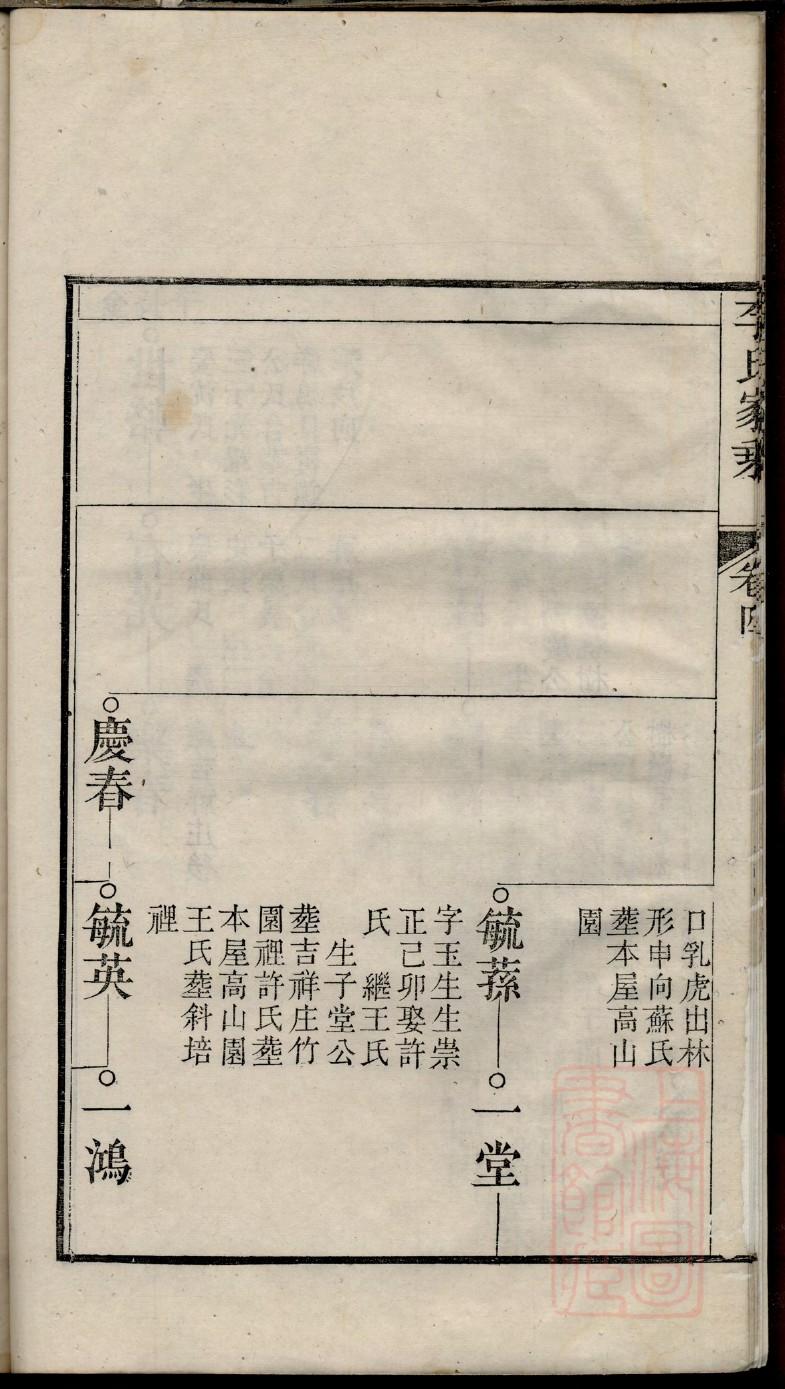 李氏家乘
卷四
口乳虎出林
形申向蘇氏
塟本屋高山
園
毓蓀
一堂
字玉生生崇
正己卯娶許
氏 繼王氏
生子堂公
塟吉祥庄竹
園裡許氏塟
本屋高山園
王氏塟斜培
裡
慶春
毓英
一鴻
上海圖
書館藏